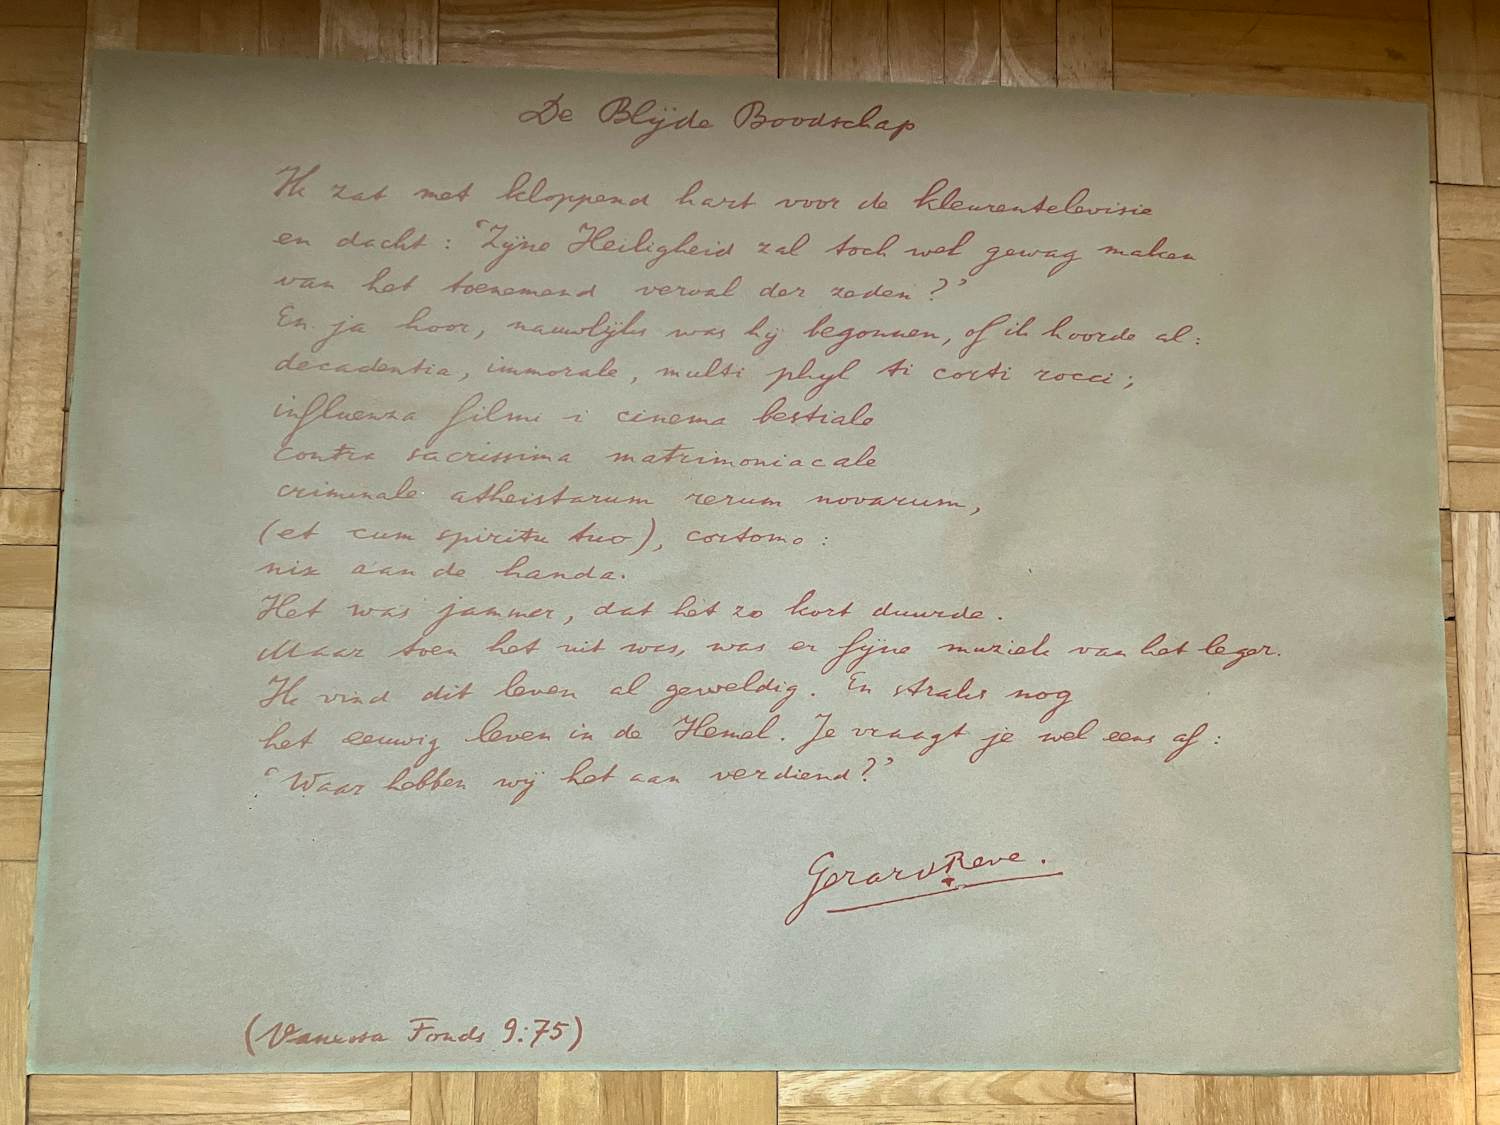 De Blijde Boodschap
Ik zat met kloppend hart voor de kleurentelevisie
en dacht: 'Zijne Heiligheid zal toch wel gewag maken
van het toenemend verval der zeden?'
En ja hoor, nauwlijks was hij begonnen, of ik hoorde al:
decadentia, immorale, multi phyl ti corti rocci;
influenza filmi i cinema bestiale
contra sacrissima matrimoniacale
criminale atheistarum rerum novarum,
(et cum spiritu tuo), cortomo:
nix aan de handa.
Het was jammer, dat het zo kort duurde.
Maar toen het uit was, was er fijne muziek van het leger.
Ik vind dit leven al geweldig. En straks nog
het eeuwig leven in de Hemel. Je vraagt je wel eens af:
'Waar hebben wij het aan verdiend?'
Gerard Reve.
(Vanessa Fonds 9:75)